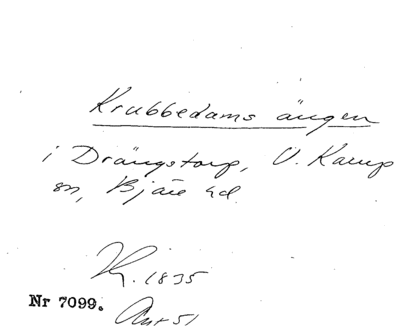 Krubbedams ängen
i Drängstorp, V. Karup
sn, Bjäre hd.
1835
Nr 7099.
51